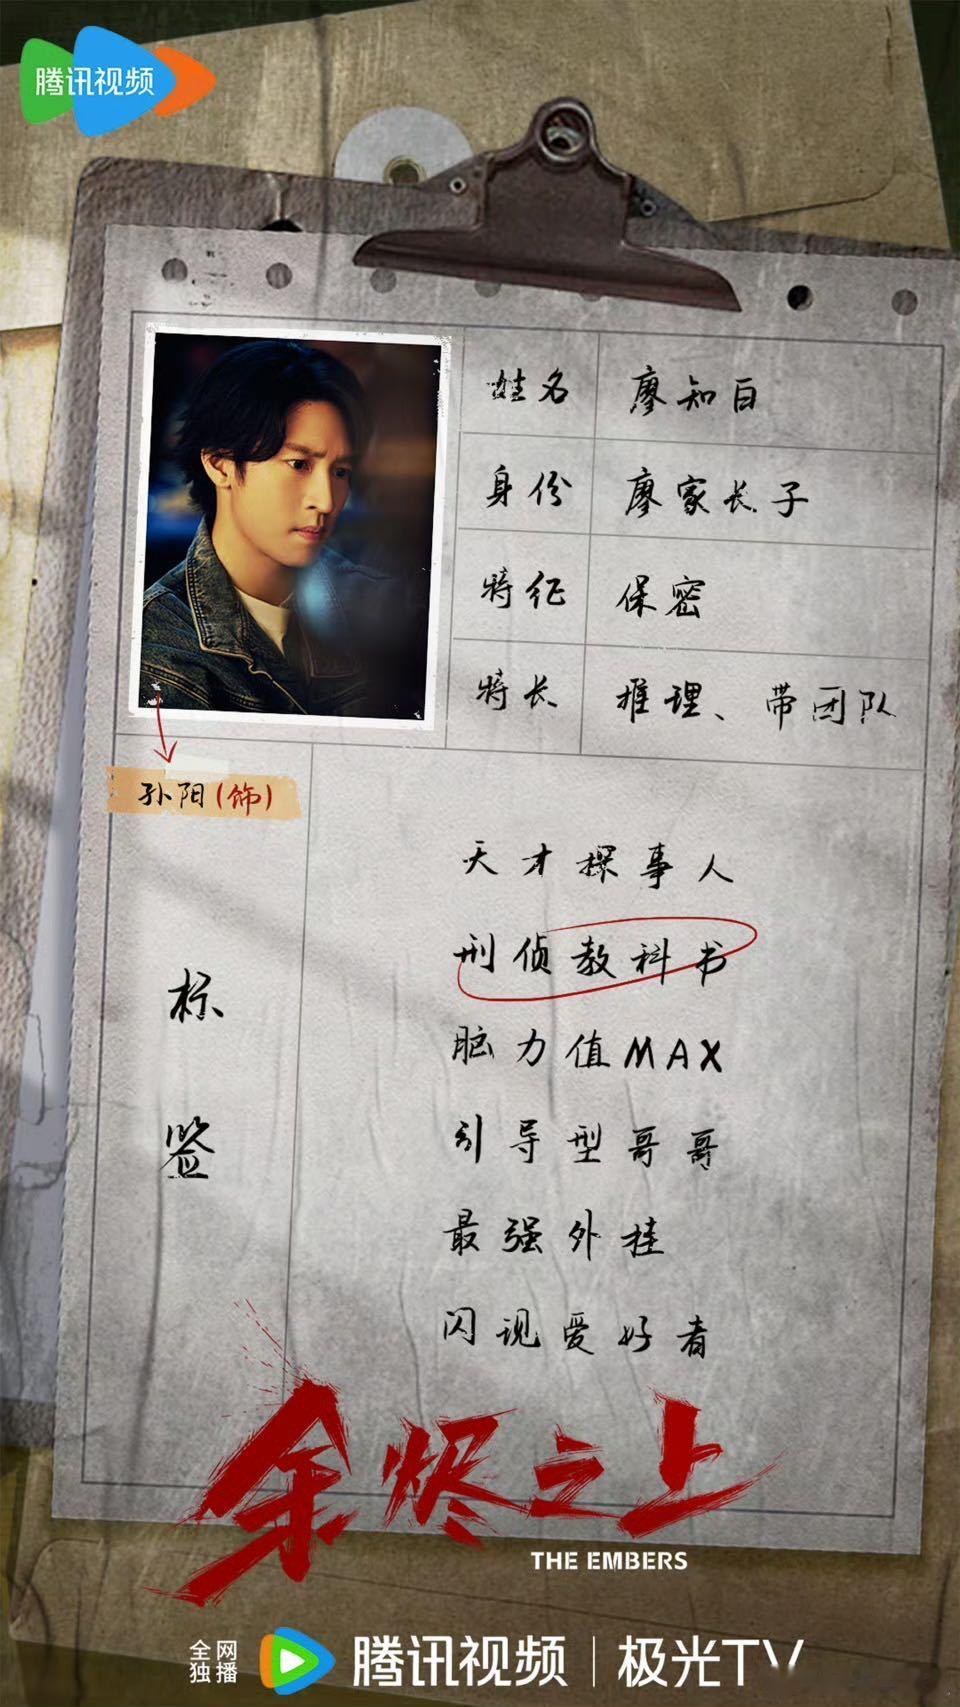 腾讯视频
姓名 廖知白
身份 廖家长子
特征 保密
特长 推理、带团队
孙阳(饰)
标签
天才探事人
刑侦教科书
脑力值MAX
引导型哥哥
最强外挂
闪现爱好者
余烬之上
THE EMBERS
全网独播 腾讯视频 | 极光TV